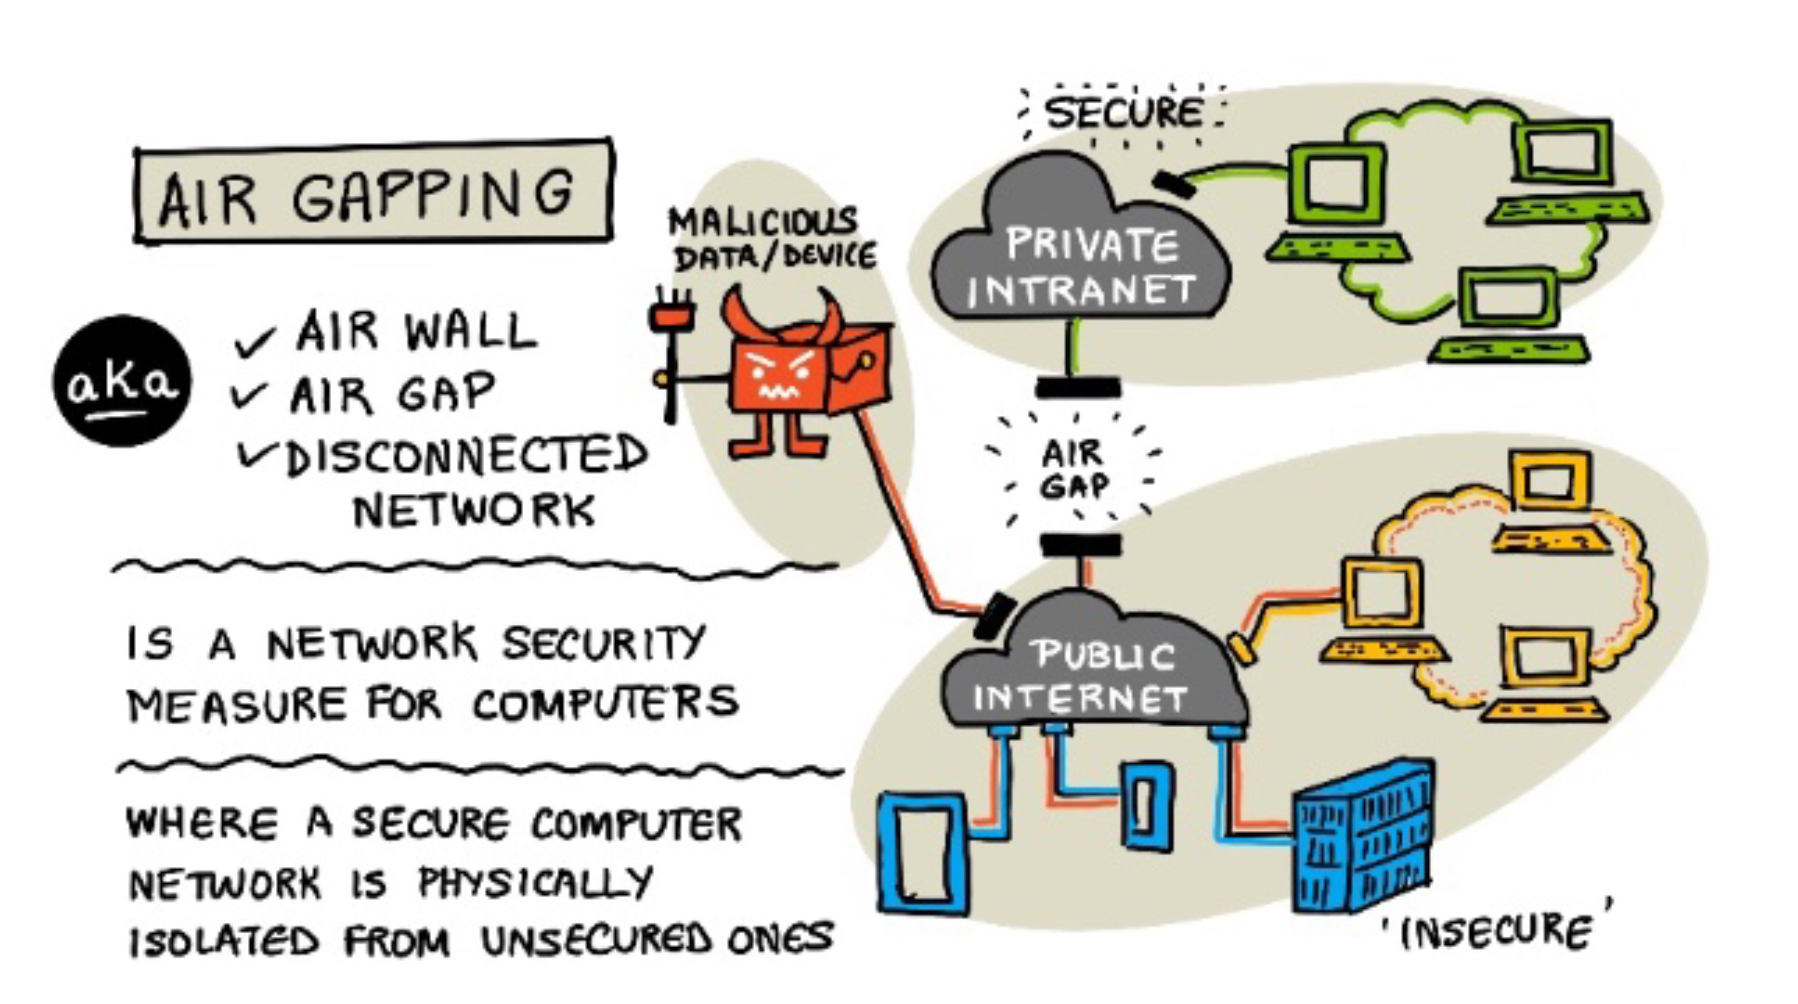 AIR GAPPING
aka
AIR WALL
AIR GAP
DISCONNECTED
NETWORK
IS A NETWORK SECURITY
MEASURE FOR COMPUTERS
WHERE A SECURE COMPUTER
NETWORK IS PHYSICALLY
ISOLATED FROM UNSECURED ONES
MALICIOUS
DATA/DEVICE
SECURE
PRIVATE
INTRANET
AIR
GAP
PUBLIC
INTERNET
'INSECURE'